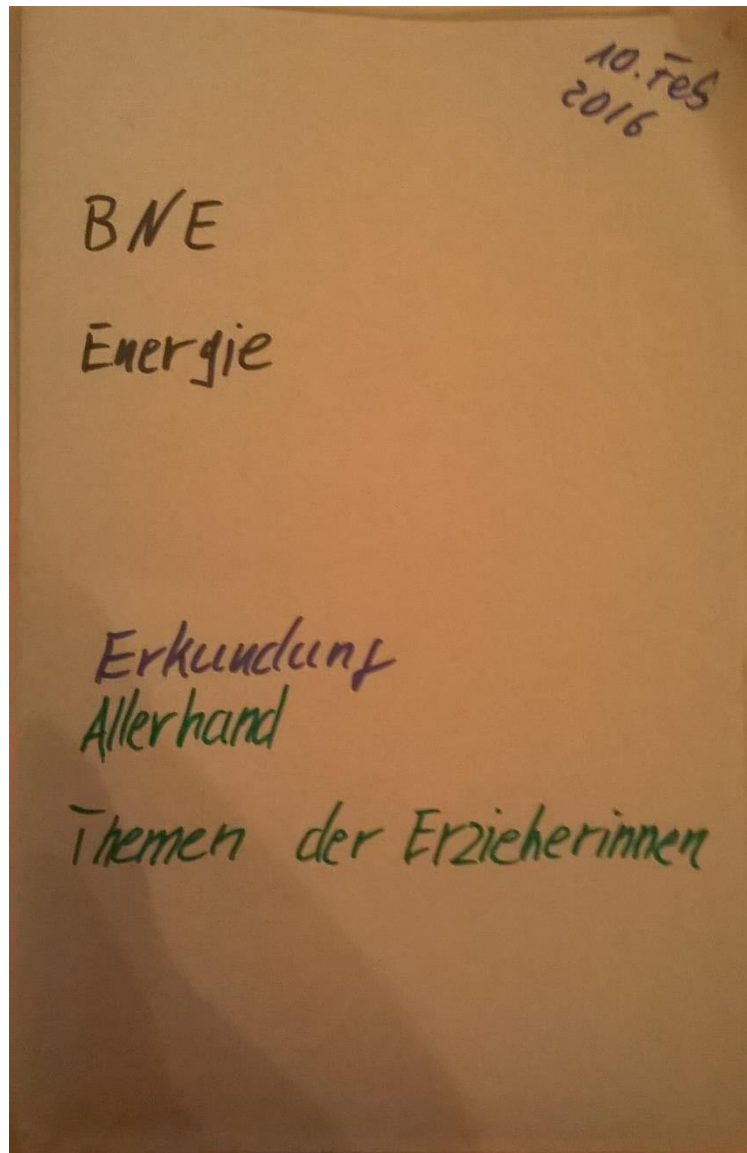 10. Feb
2016
BNE
Energie
Erkundung
Allerhand
Themen der Erzieherinnen